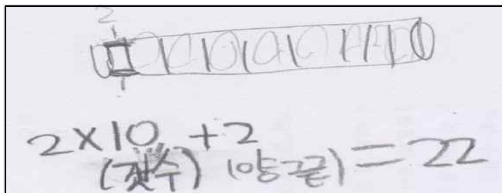 2
2×10 +2 = 22
(갯수) (양끝)